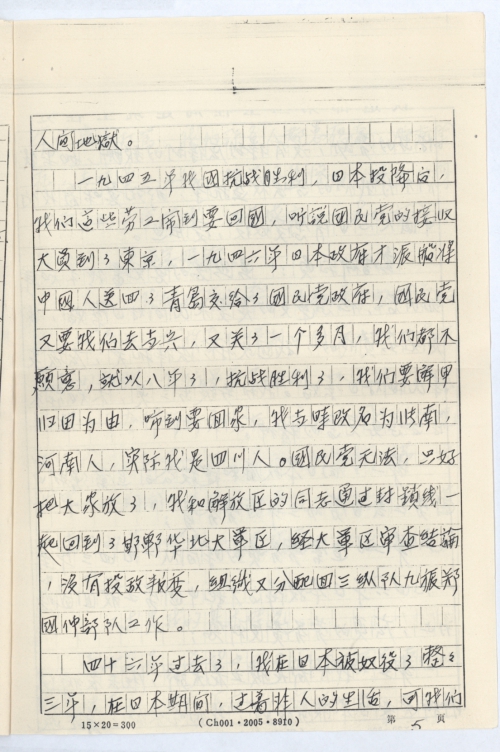 人间地獄。
一九四五年我國抗战胜利，日本投降后，
我们这些劳工闹到要回國，听説国民党的接收
大员到了東京，一九四六年日本政府才派船将
中國人送回了青島交给了國民党政府，國民党
又要我们去当兵，又关了一个多月，我们都不
願意，就以八年了，抗战胜利了，我们要解甲
归田为由，闹到要回家，我当時改名为洪南，
河南人，实际我是四川人。國民党无法，只好
把大家放了，我和解放区的同志通过封鎖线一
起回到了邯郸华北大軍区，经大軍区审查结論
，沒有投敌叛变，组织又分配回三纵队九旅郑
國仲部队工作。
四十六年过去了，我在日本被奴役了整整
三年，在日本期间，过着非人的生活，回我们
15×20=300 (Ch001·2005·8910) 第 5 页